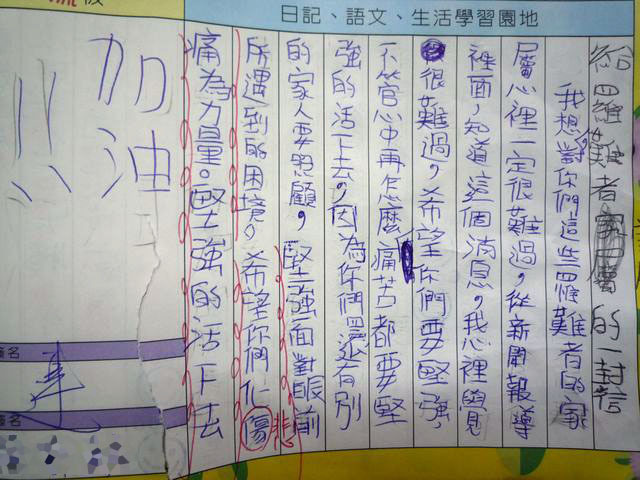 日記、語文、生活學習園地
給罹難者家屬的一封信
我想對你們這些罹難者的家
屬心裡一定很難過,從新聞報導
裡面,知道這個消息,我心裡覺
很難過,希望你們要堅強,
不管心中再怎麼痛苦都要堅
強的活下去,因為你們還有別
的家人要照顧,堅強面對眼前
所遇到的困境。希望你們化傷
悲
痛為力量。堅強的活下去
加油
!!
名
名